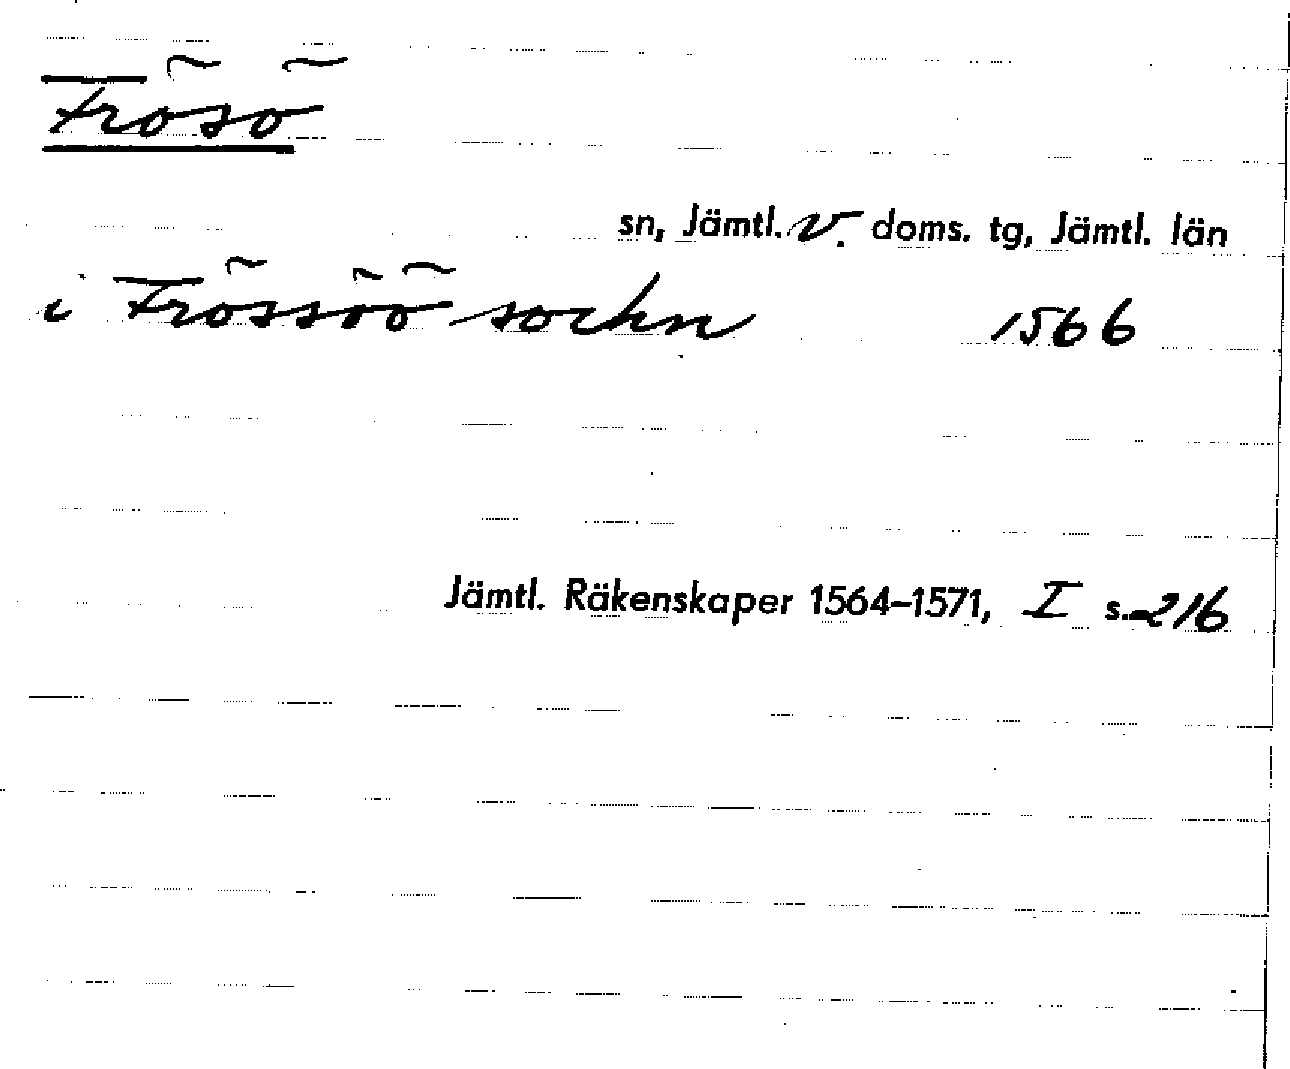 Frösö
sn, Jämtl. v. doms. tg, Jämtl. län
i Frössöö sockn 1566
Jämtl. Räkenskaper 1564–1571, I s. 216